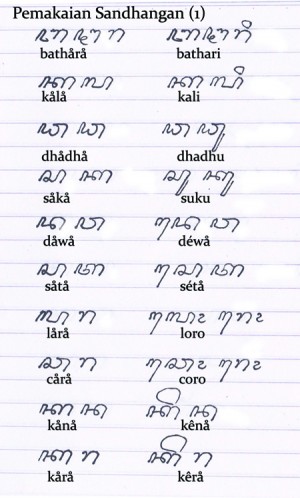 Pemakaian Sandhangan (1)
ꦧꦛꦫ ꦧꦛꦫꦶ
bathårå bathari
ꦏꦭ ꦏꦭꦶ
kålå kali
ꦝꦝ ꦝꦝꦸ
dhådhå dhadhu
ꦱꦏ ꦱꦸꦏꦸ
såkå suku
ꦢꦮ ꦢꦺꦮ
dåwå déwå
ꦱꦠ ꦱꦺꦠ
såtå sétå
ꦭꦫ ꦭꦺꦴꦫꦺꦴ
lårå loro
ꦕꦫ ꦕꦺꦴꦫꦺꦴ
cårå coro
ꦏꦤ ꦏꦼꦤ
kånå kênå
ꦏꦫ ꦏꦼꦫ
kårå kêrå